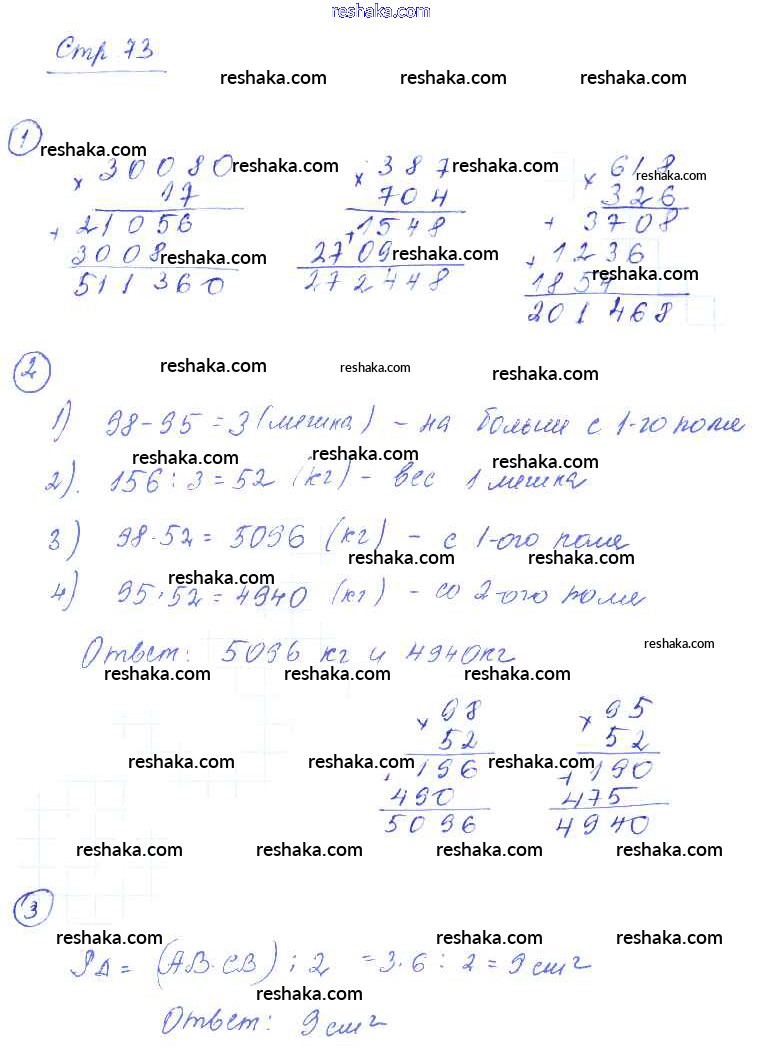 www.reshaka.com
Стр 73
reshaka.com reshaka.com reshaka.com
1
reshaka.com reshaka.com reshaka.com reshaka.com
× 30080 × 387 × 618
17 704 326
+ 21056 + 1548 + 3708
3008 2709 + 1236
reshaka.com reshaka.com reshaka.com
511360 272448 1854
201468
2
reshaka.com reshaka.com reshaka.com
1) 98-95=3 (мешка) - на больше с 1-го поля
reshaka.com reshaka.com reshaka.com
2). 156:3=52 (кг) - вес 1 мешка
3) 98·52=5096 (кг) - с 1-ого поля
reshaka.com reshaka.com reshaka.com
4) 95·52=4940 (кг) - со 2-ого поля
Ответ: 5096 кг и 4940кг
reshaka.com
reshaka.com reshaka.com reshaka.com
× 98 × 95
52 52
+ 196 + 190
reshaka.com reshaka.com reshaka.com
490 475
5096 4940
reshaka.com reshaka.com reshaka.com
3
reshaka.com reshaka.com reshaka.com
SΔ = (AB·CB) : 2 = 3·6 : 2 = 9 см²
reshaka.com reshaka.com
Ответ: 9 см²